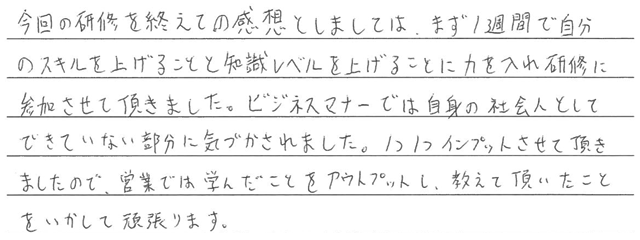 今回の研修を終えての感想としましては、まず1週間で自分
のスキルを上げることと知識レベルを上げることに力を入れ研修に
参加させて頂きました。ビジネスマナーでは自身の社会人として
できていない部分に気づかされました。1つ1つインプットさせて頂き
ましたので、営業では学んだことをアウトプットし、教えて頂いたこと
をいかして頑張ります。